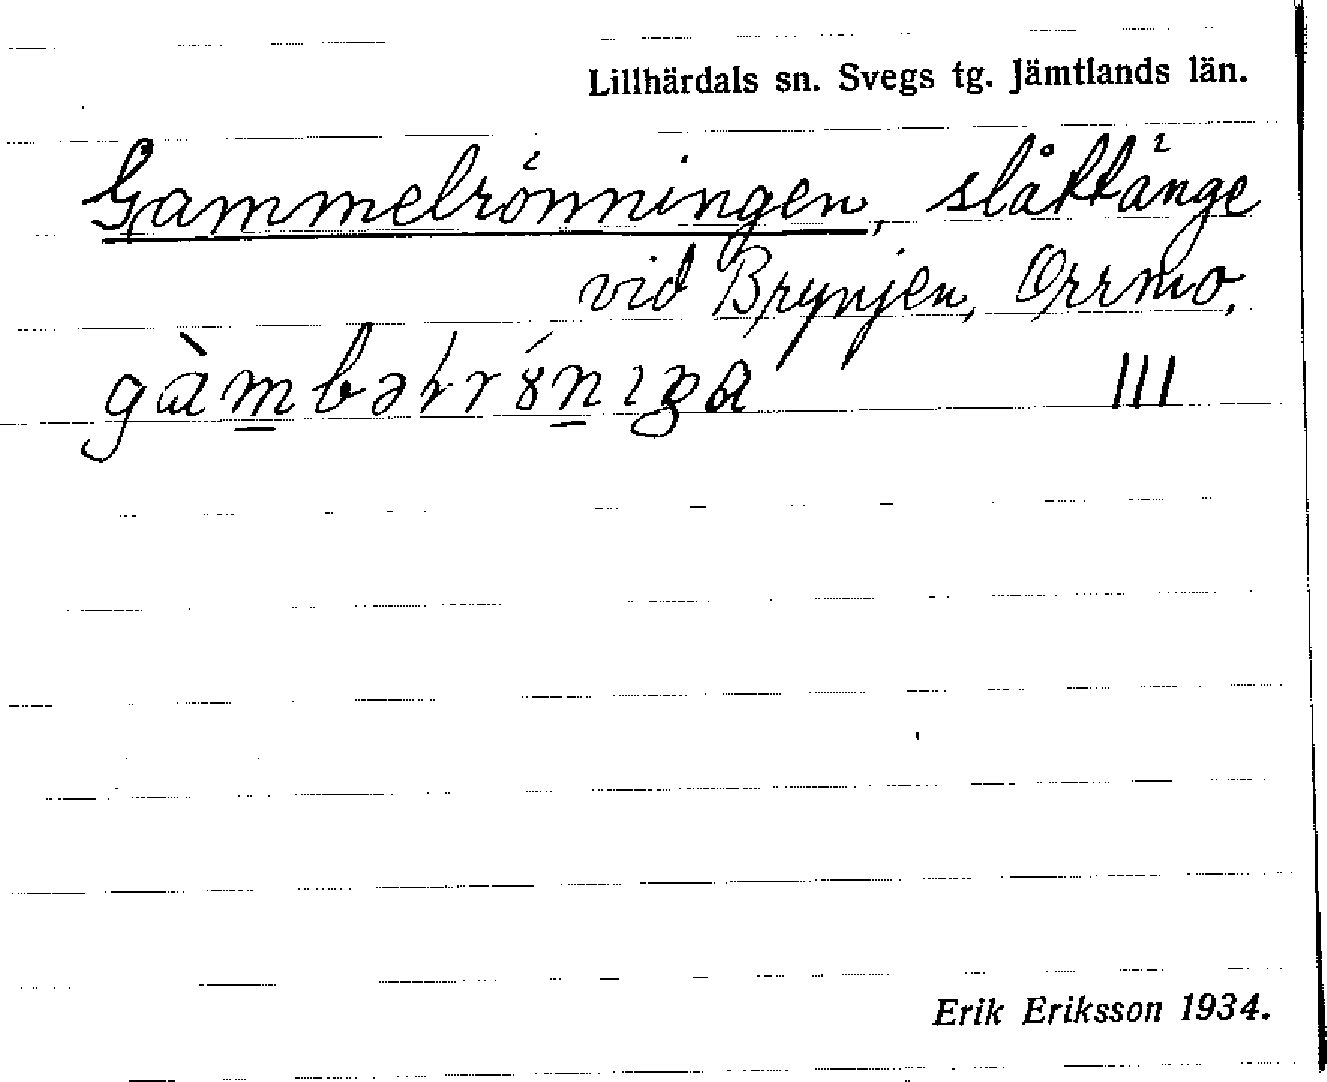 Lillhärdals sn. Svegs tg. Jämtlands län.
Gammelrönningen, slåttänge
vid Brynjen, Orrmo.
gàm̲bəɫrǿn̲ıŋa III
Erik Eriksson 1934.